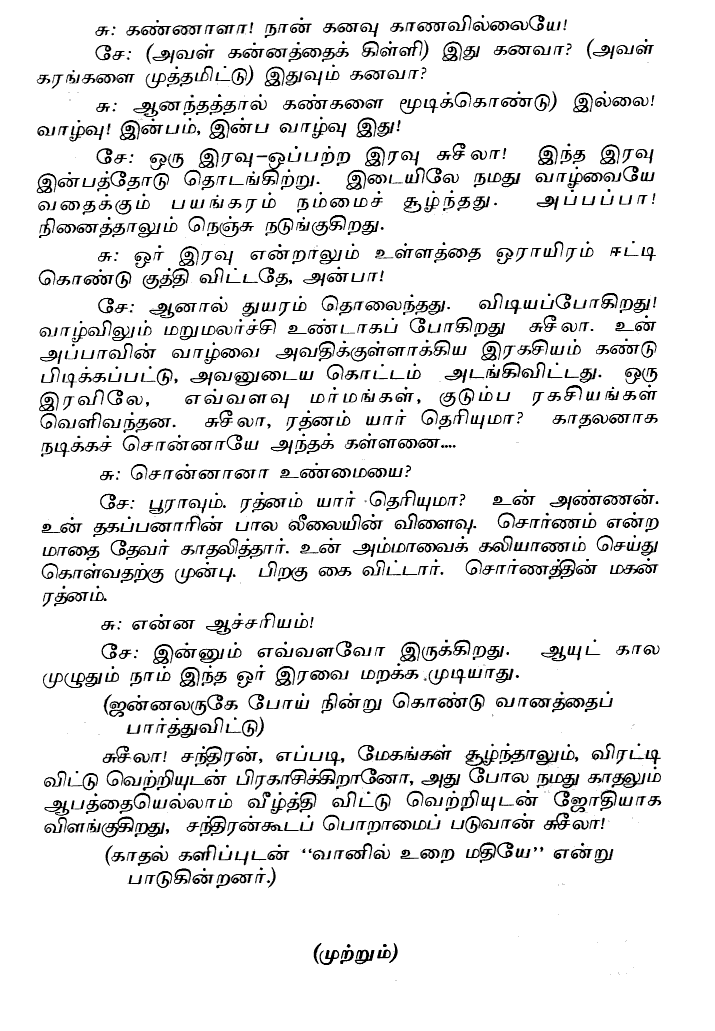 சு: கண்ணாளா! நான் கனவு காணவில்லையே!
சே: (அவள் கன்னத்தைக் கிள்ளி) இது கனவா? (அவள்
கரங்களை முத்தமிட்டு) இதுவும் கனவா?
சு: ஆனந்தத்தால் கண்களை மூடிக்கொண்டு) இல்லை!
வாழ்வு! இன்பம், இன்ப வாழ்வு இது!
சே: ஒரு இரவு—ஒப்பற்ற இரவு சுசீலா! இந்த இரவு
இன்பத்தோடு தொடங்கிற்று. இடையிலே நமது வாழ்வையே
வதைக்கும் பயங்கரம் நம்மைச் சூழ்ந்தது. அப்பப்பா!
நினைத்தாலும் நெஞ்சு நடுங்குகிறது.
சு: ஒர் இரவு என்றாலும் உள்ளத்தை ஒராயிரம் ஈட்டி
கொண்டு குத்தி விட்டதே, அன்பா!
சே: ஆனால் துயரம் தொலைந்தது. விடியப்போகிறது!
வாழ்விலும் மறுமலர்ச்சி உண்டாகப் போகிறது சுசீலா. உன்
அப்பாவின் வாழ்வை அவதிக்குள்ளாக்கிய இரகசியம் கண்டு
பிடிக்கப்பட்டு, அவனுடைய கொட்டம் அடங்கிவிட்டது. ஒரு
இரவிலே, எவ்வளவு மர்மங்கள், குடும்ப ரகசியங்கள்
வெளிவந்தன. சுசீலா, ரத்னம் யார் தெரியுமா? காதலனாக
நடிக்கச் சொன்னாயே அந்தக் கள்ளனை....
சு: சொன்னானா உண்மையை?
சே: பூராவும். ரத்னம் யார் தெரியுமா? உன் அண்ணன்.
உன் தகப்பனாரின் பால லீலையின் விளைவு. சொர்ணம் என்ற
மாதை தேவர் காதலித்தார். உன் அம்மாவைக் கலியாணம் செய்து
கொள்வதற்கு முன்பு. பிறகு கை விட்டார். சொர்ணத்தின் மகன்
ரத்னம்.
சு: என்ன ஆச்சரியம்!
சே: இன்னும் எவ்வளவோ இருக்கிறது. ஆயுட் கால
முழுதும் நாம் இந்த ஒர் இரவை மறக்க முடியாது.
(ஜன்னலருகே போய் நின்று கொண்டு வானத்தைப்
பார்த்துவிட்டு)
சுசீலா! சந்திரன், எப்படி, மேகங்கள் சூழ்ந்தாலும், விரட்டி
விட்டு வெற்றியுடன் பிரகாசிக்கிறானோ, அது போல நமது காதலும்
ஆபத்தையெல்லாம் வீழ்த்தி விட்டு வெற்றியுடன் ஜோதியாக
விளங்குகிறது, சந்திரன்கூடப் பொறாமைப் படுவான் சுசீலா!
(காதல் களிப்புடன் “வானில் உறை மதியே” என்று
பாடுகின்றனர்.)
(முற்றும்)